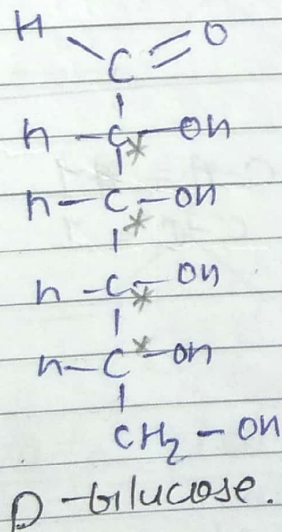 H O
C
H - C - OH
H - C - OH
H - C - OH
H - C - OH
CH2 - OH
D-Glucose.